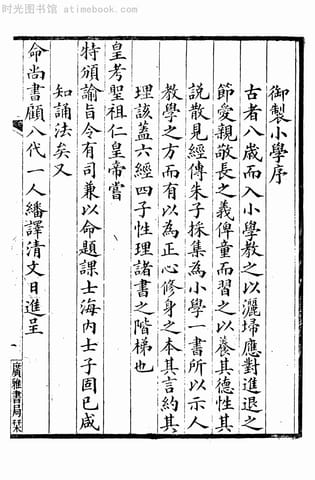 时光图书馆 - atimebook.com
御製小學序
古者八歳而入小學教之以灑埽應對進退之
節愛親敬長之義俾童而習之以養其德性其
說散見經傳朱子採集為小學一書所以示人
教學之方而有以為正心修身之本其言約其
理該葢六經四子性理諸書之階梯也
皇考聖祖仁皇帝嘗
特頒諭旨令有司兼以命題課士海內士子固已咸
知誦法矣又
命尚書顧八代一人繙譯清文日進呈
一
廣雅書局栞